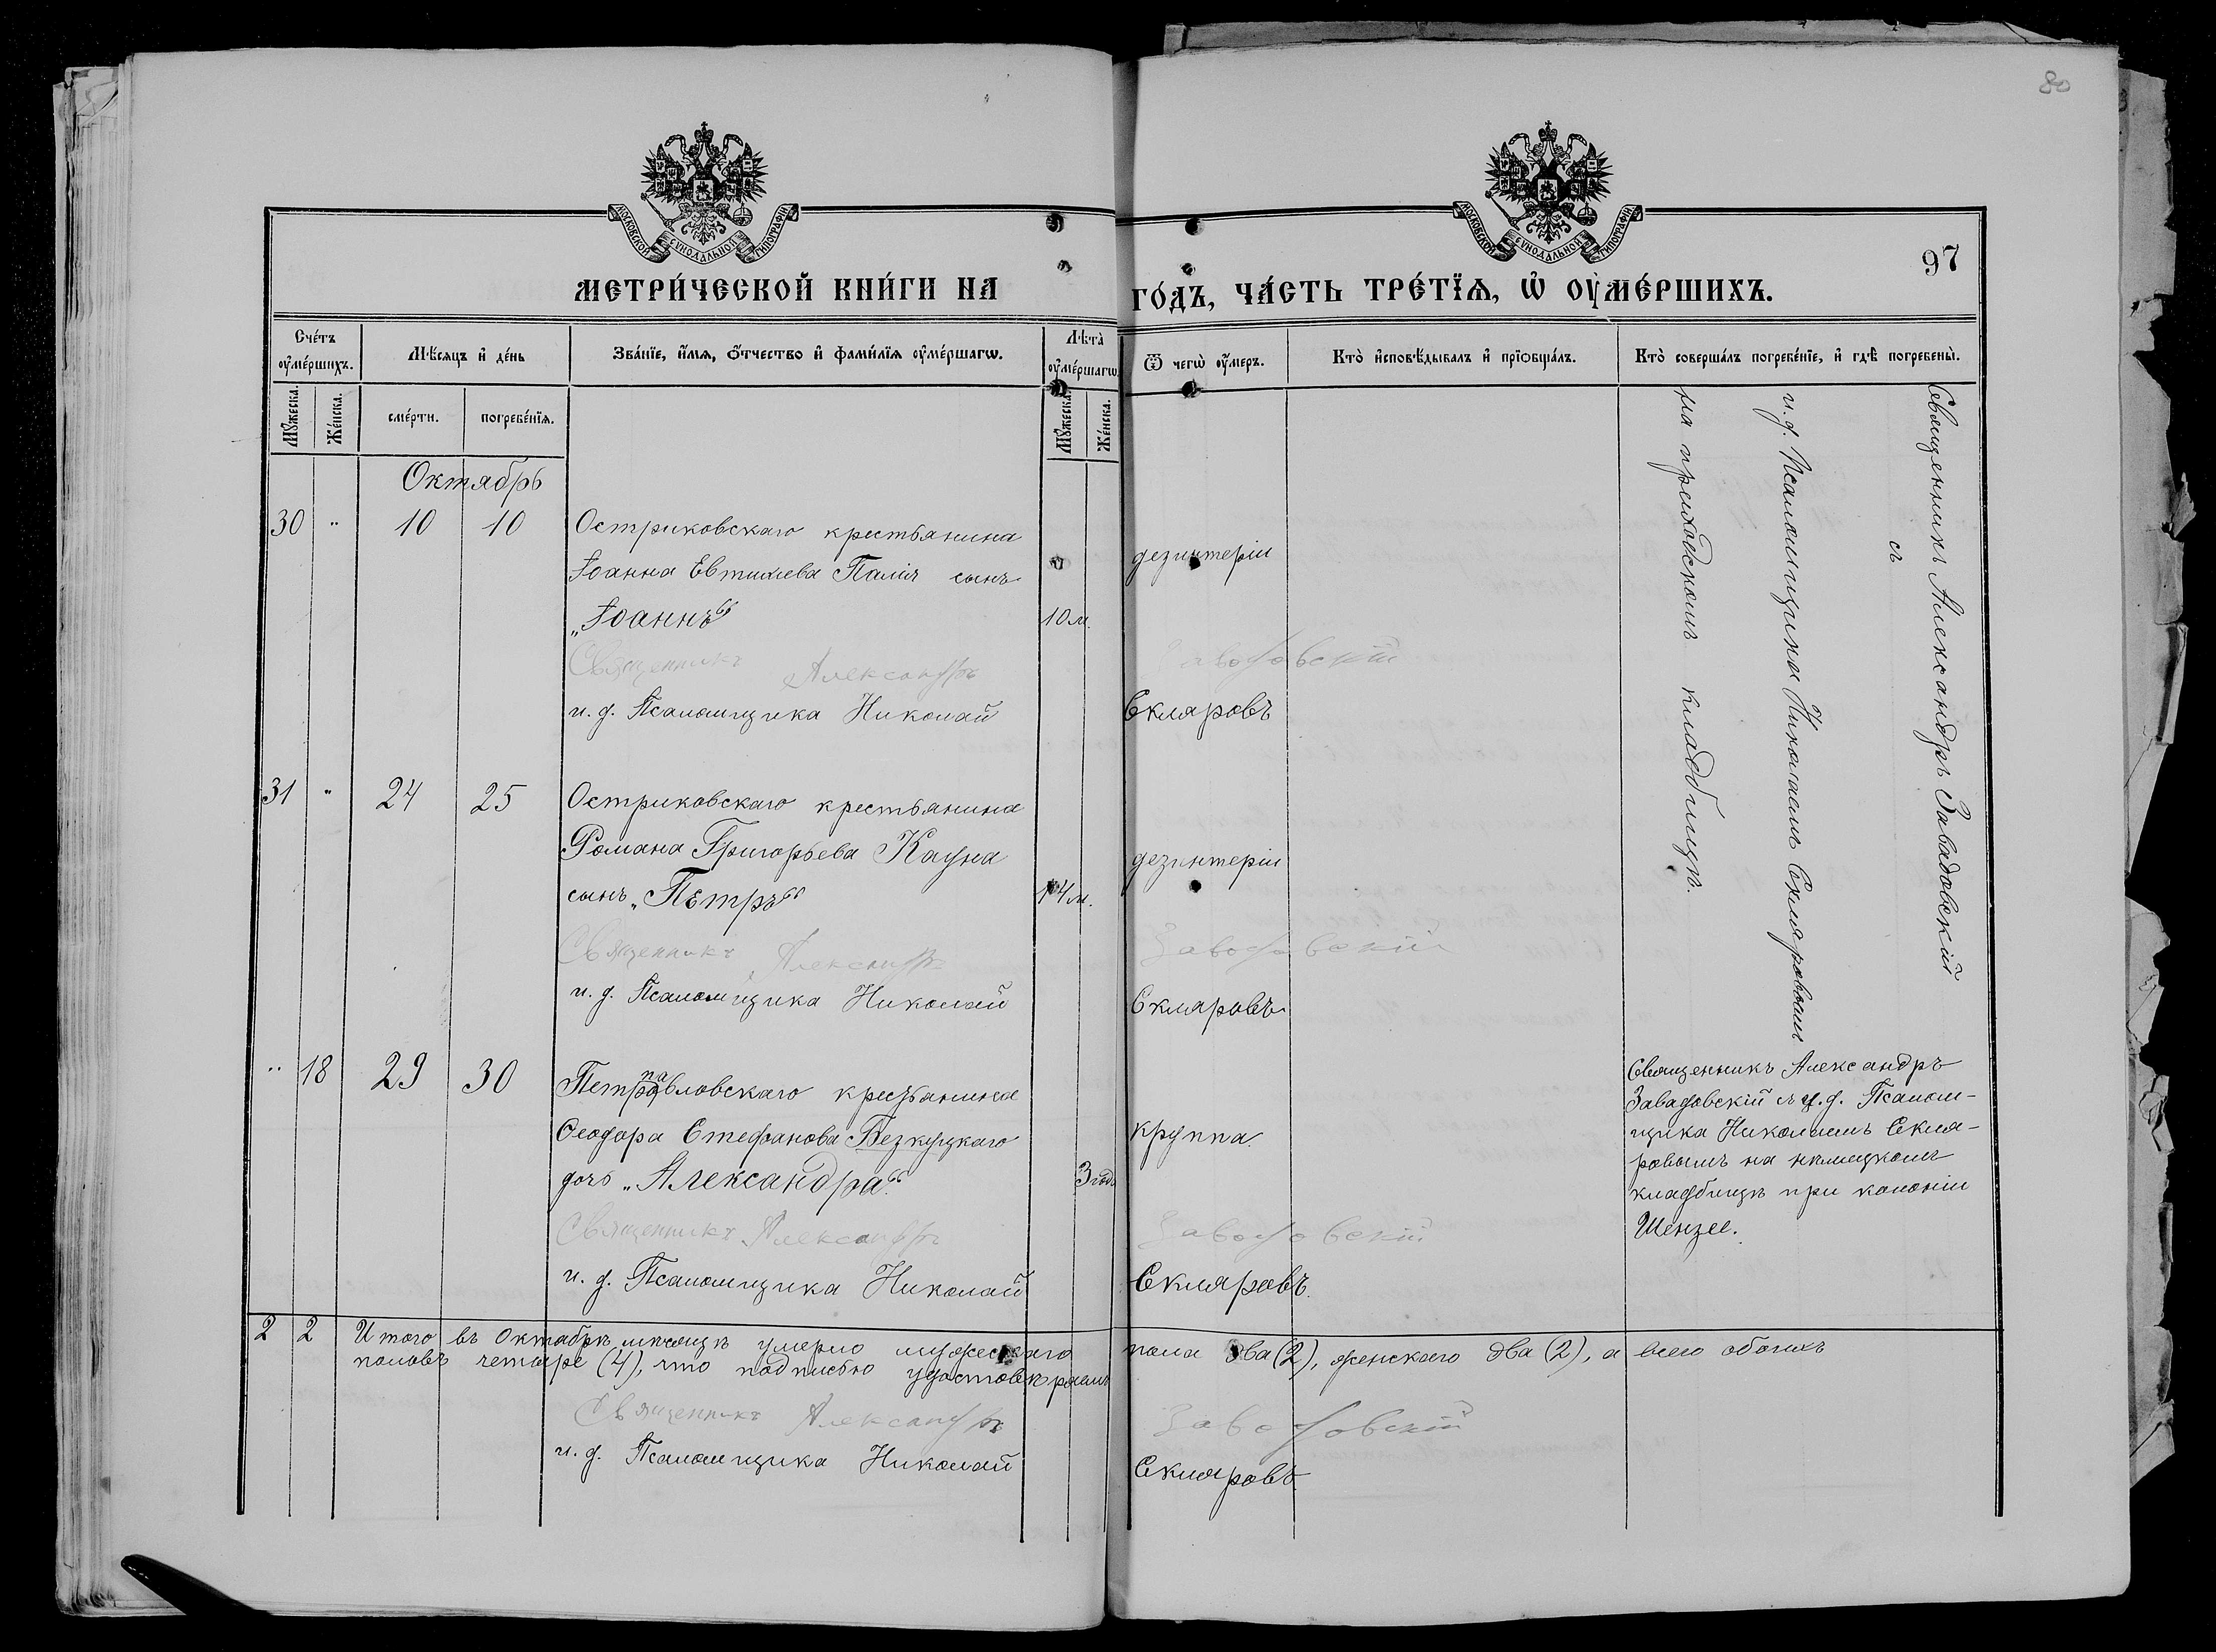 80
МОСКОВСКОЙ СѴНОДАЛЬНОЙ ТИПОГРАФІИ
МОСКОВСКОЙ СѴНОДАЛЬНОЙ ТИПОГРАФІИ
97
МЕТРИ́ЧЕСКОЙ КНИ́ГИ НА ГО́ДЪ, ЧА́СТЬ ТРЕ́ТЇѦ, Ѡ҆ ОУ҆МЕ́РШИХЪ.
Сче́тъ оу҆ме́ршихъ.
Мѣ́сяцъ и҆ де́нь
Зва́нїе, и҆́мѧ, ѻ҆́тчество и҆ фами́лїѧ оу҆ме́ршагѡ.
Лѣ́та оу҆ме́ршагѡ.
Ѿ чегѡ̀ оу҆́меръ.
Кто̀ и҆сповѣ́дывалъ и҆ прїѡбща́лъ.
Кто̀ соверша́лъ погребе́нїе, и҆ гдѣ̀ погребены̀.
Мꙋ́жеска.
Же́нска.
сме́рти.
погребе́нїѧ.
Мꙋ́жеска.
Же́нска.
Октябрь
30 " 10 10 Остриковскаго крестьянина
Іоанна Евтихіева Палія сынъ дезинтеріи
„Іоаннъ“ 10 м.
Священникъ Александръ Завадовскій
и. д. Псаломщика Николай Скляровъ
Священникъ Александръ Завадовскій
съ
и. д. Псаломщика Николаемъ Скляровымъ
на приходскомъ кладбищѣ.
31 " 24 25 Остриковскаго крестьянина
Романа Григорьева Кауна дезинтеріи
сынъ „Петръ“ 4 м.
Священникъ Александръ Завадовскій
и. д. Псаломщика Николай Скляровъ
" 18 29 30 Петропавловскаго крестьянина
Ѳеодора Стефанова Безкуцкаго круппа
дочь „Александра“. 3 года
Священникъ Александръ Завадовскій
и. д. Псаломщика Николай Скляровъ.
Священникъ Александръ
Завадовскій съ и. д. Псалом-
щика Николаемъ Скля-
ровымъ на нѣмецкомъ
кладбищѣ при колоніи
Шензее.
2 2 Итого въ Октябрѣ мѣсяцѣ умерло мужескаго пола два (2), женскаго два (2), а всего обоихъ
половъ четыре (4), что подписью удостовѣряемъ
Священникъ Александръ Завадовскій
и. д. Псаломщика Николай Скляровъ